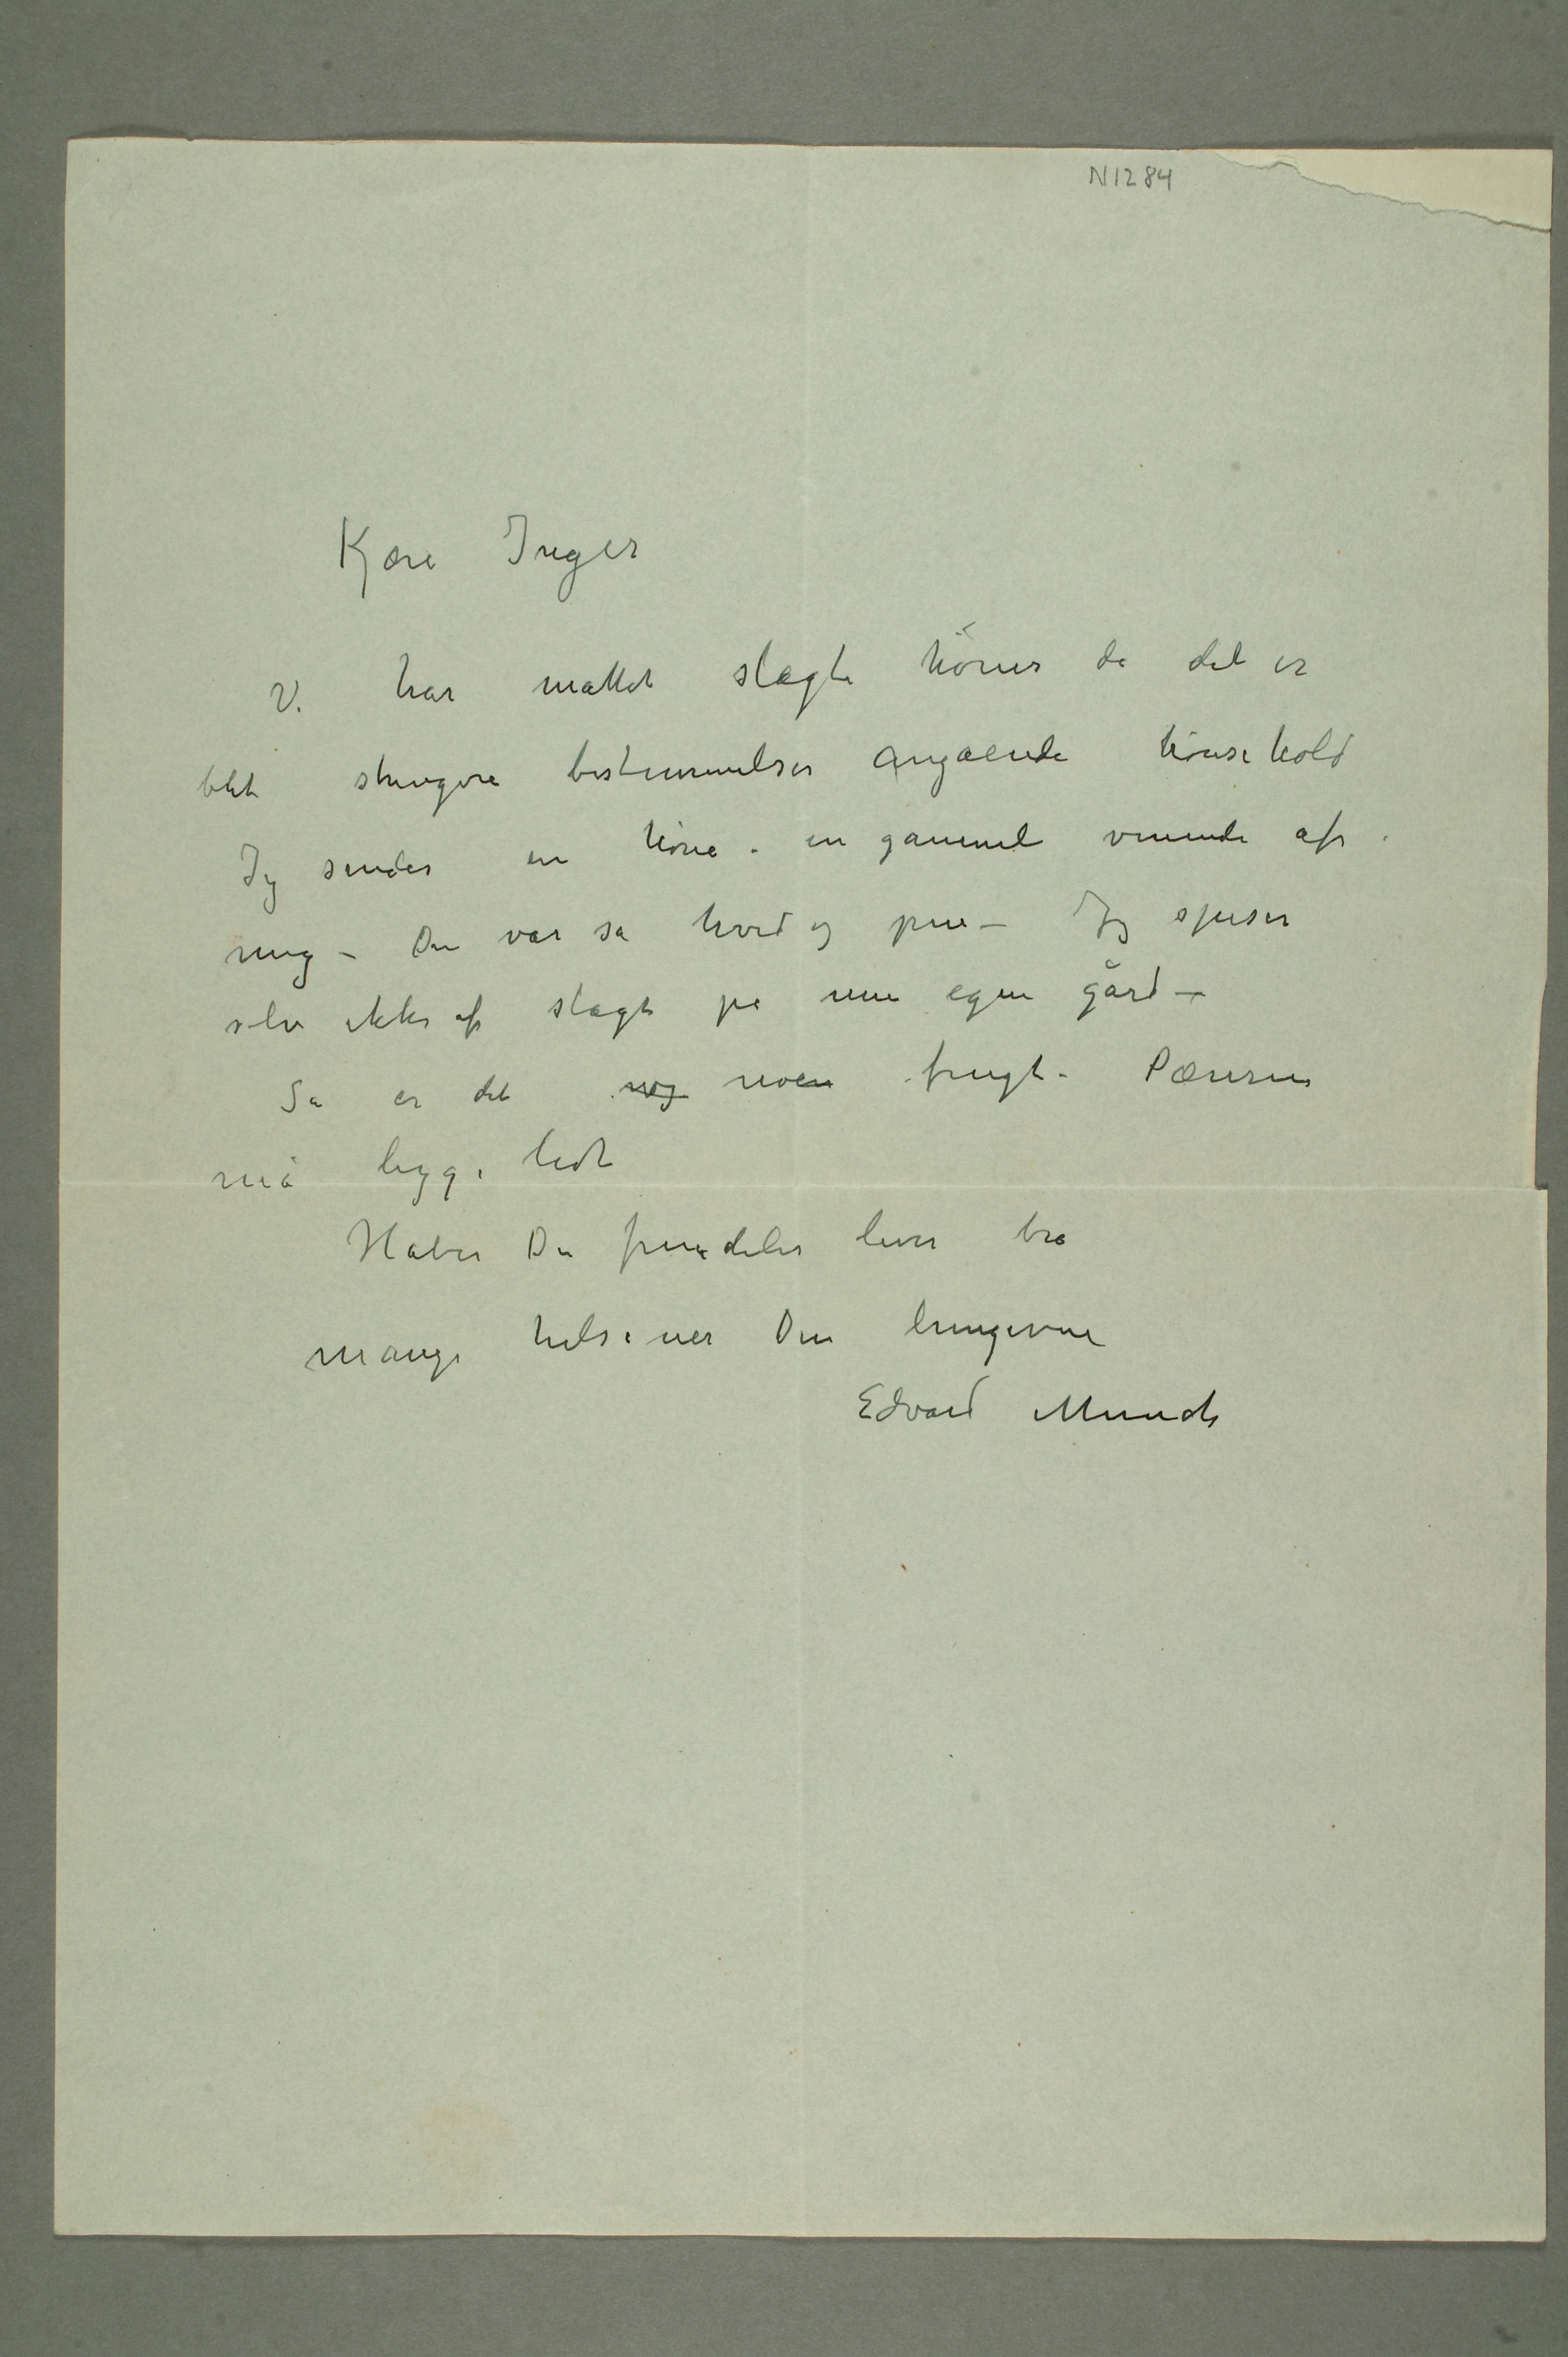 N1284
Kjære Inger
Vi har måttet slagte høner da det er
blit strengere bestemmelser angående hønsehold
Jeg sender en høne – en gammel veninde af
mig – Den var så hvid og pen – Jeg spiser
selv ikke af slagt på min egen gård –
Så er det nog noen frugt – Pærerne
må ligge lidt
Håber Du fremdeles lever bra
mange hilsener Din hengivne
Edvard Munch